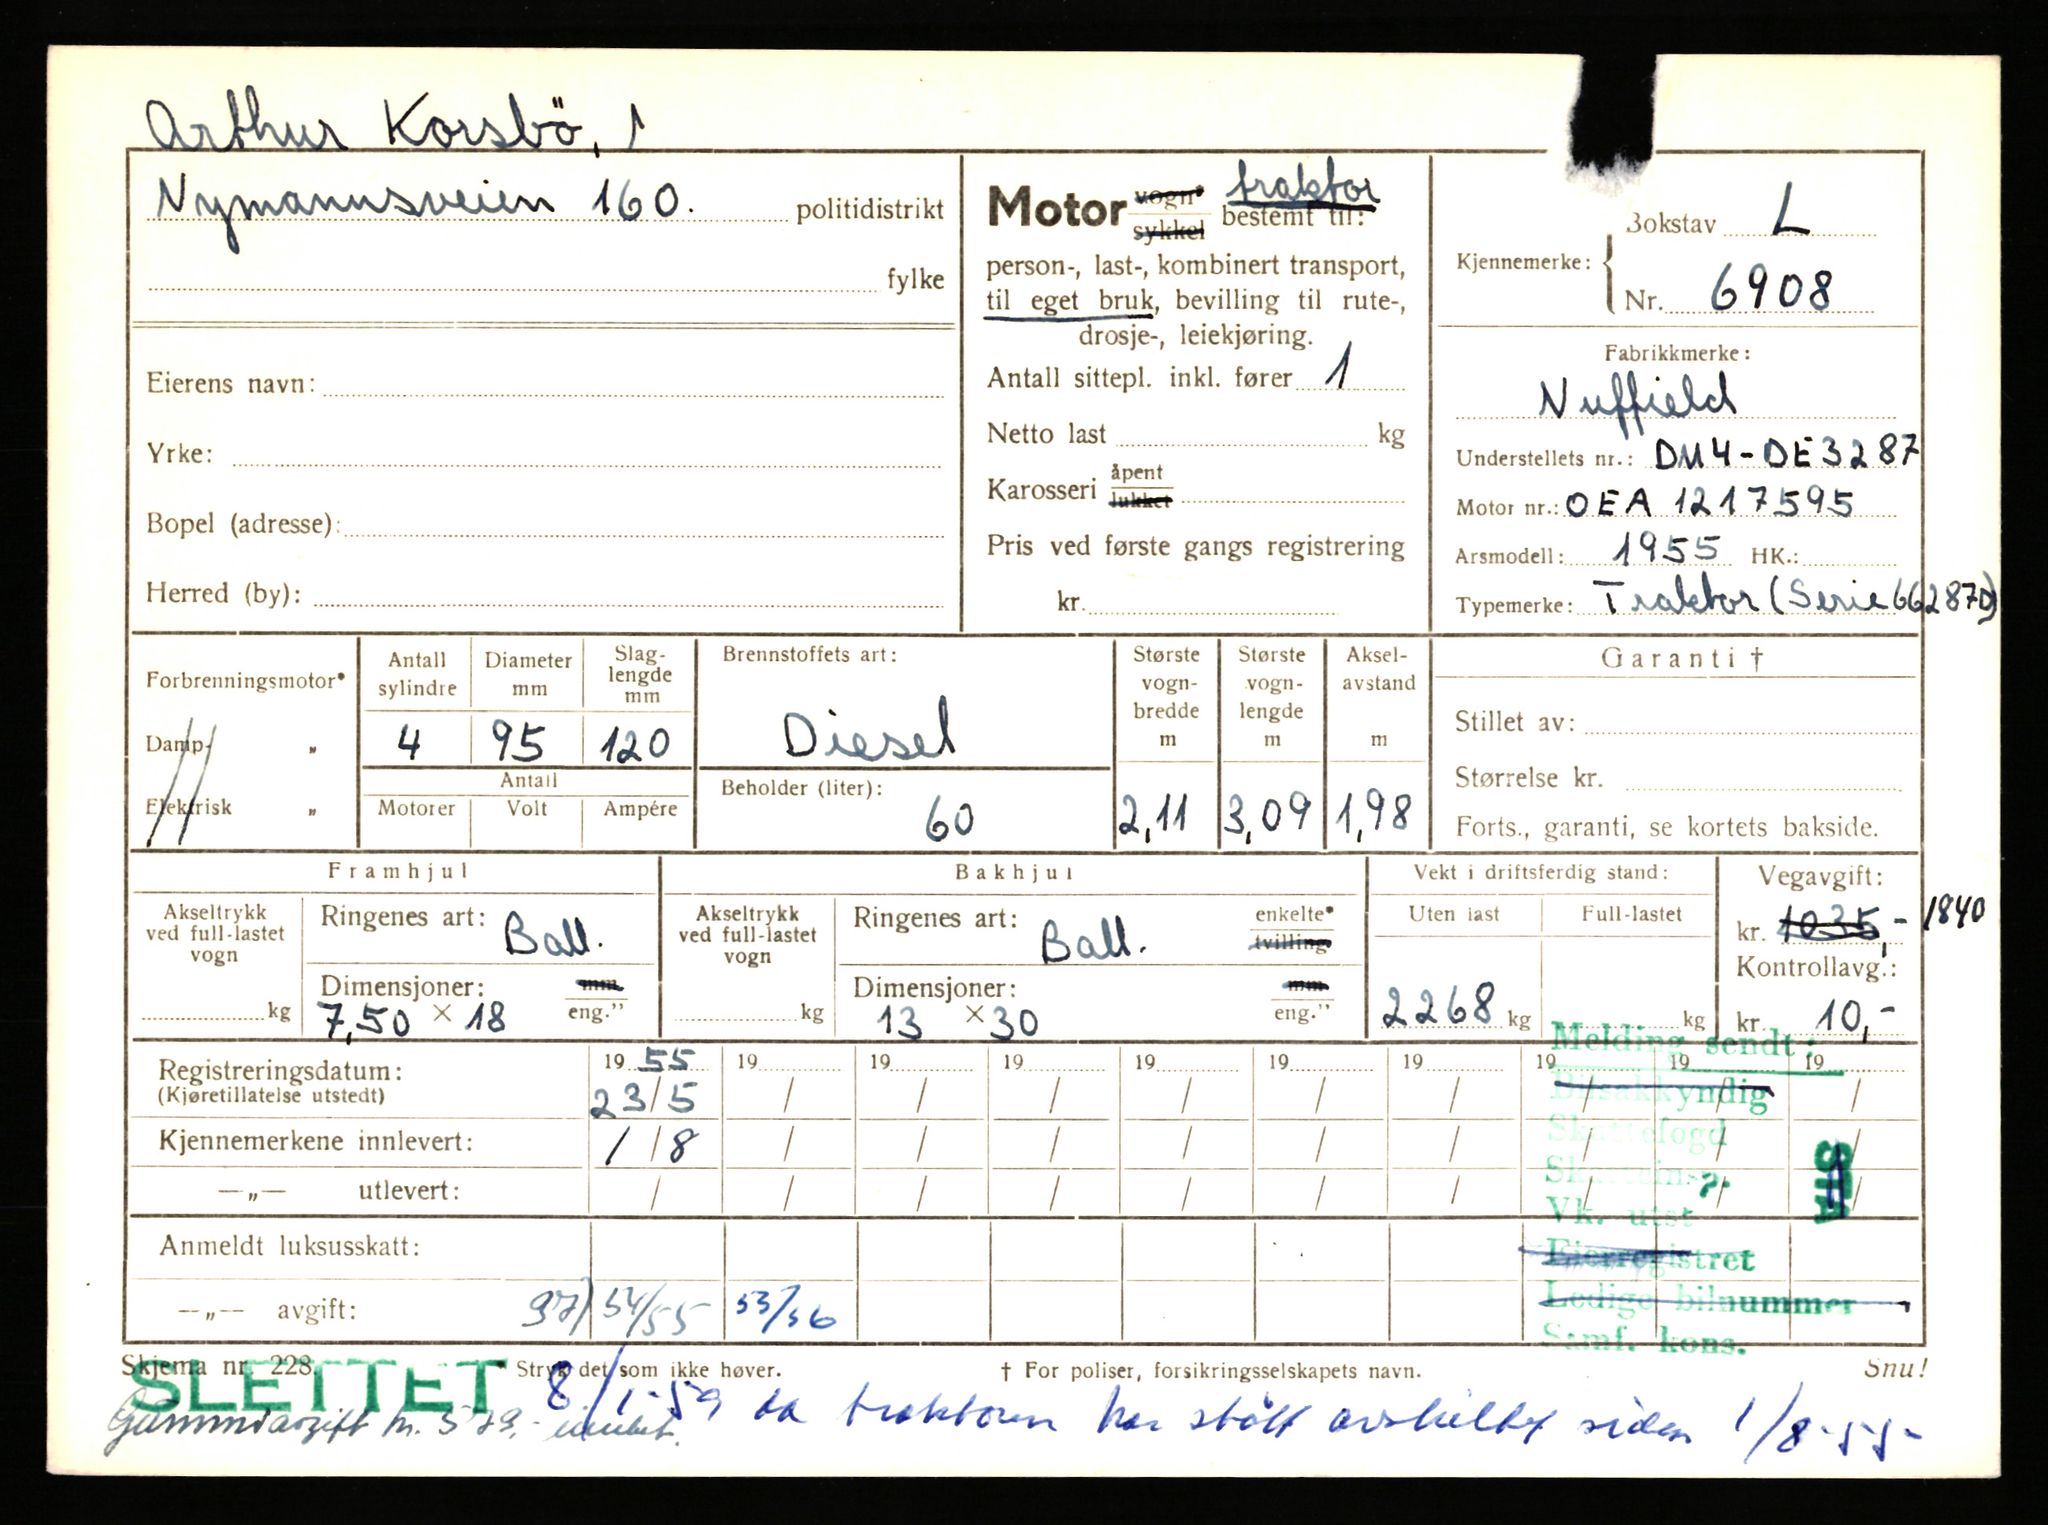 Arthur Korsbö,
Nymannsveien 160. politidistrikt
fylke
Eierens navn:
Yrke:
Bopel (adresse):
Herred (by):
Motor vogn* sykkel traktor bestemt til:
person-, last-, kombinert transport,
til eget bruk, bevilling til rute-,
drosje-, leiekjøring.
Antall sittepl. inkl. fører 1
Netto last kg
Karosseri åpent lukket
Pris ved første gangs registrering
kr.
Kjennemerke: Bokstav L
Nr. 6908
Fabrikkmerke:
Nuffield
Understellets nr.: DM4-DE3287
Motor nr.: OEA 1217595
Årsmodell: 1955 HK.:
Typemerke: Traktor (Serie 66287D)
Forbrenningsmotor*
Damp- "
Elektrisk "
Antall sylindre 4
Diameter mm 95
Slaglengde mm 120
Antall
Motorer Volt Ampére
Brennstoffets art:
Diesel
Beholder (liter):
60
Største vognbredde m 2,11
Største vognlengde m 3,09
Akselavstand m 1,98
Garanti †
Stillet av:
Størrelse kr.
Forts., garanti, se kortets bakside.
Framhjul
Akseltrykk ved full-lastet vogn kg
Ringenes art: Ball.
Dimensjoner: mm eng."
7,50 × 18
Bakhjul
Akseltrykk ved full-lastet vogn kg
Ringenes art: Ball. enkelte* tvilling
Dimensjoner: mm eng."
13 × 30
Vekt i driftsferdig stand:
Uten last Full-lastet
2268 kg kg
Vegavgift:
kr. 1035,- 1840
Kontrollavg.:
kr. 10,-
Registreringsdatum: 19 55 19 19 19 19 19 19 19 19 19
(Kjøretillatelse utstedt) 23/5 / / / / / / / / /
Kjennemerkene innlevert: 1/8 / / / / / / / / /
—„— utlevert: / / / / / / / / / /
Anmeldt luksusskatt:
—„— avgift: 54/55 55/56
Melding sendt:
Bilsakkyndig
Skattefogd
Vk. utst
Eierregistret
Ledige bilnummer
Samf. kons.
Skjema nr. 228. * Stryk det som ikke høver. † For poliser, forsikringsselskapets navn. Snu!
SLETTET 8/1-59 da traktoren har stått avskiltet siden 1/8-55-
Gummiavgift kr. 579,-